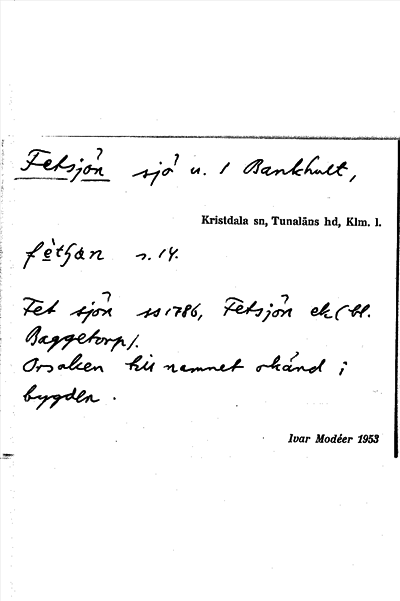 Fetsjön sjö u. / Bankhult,
Kristdala sn, Tunaläns hd, Klm. l.
s. 14.
Fet sjön 1786, Fetsjön ek (bl.
Baggetorp).
Orsaken till namnet okänd i
bygden.
Ivar Modéer 1953